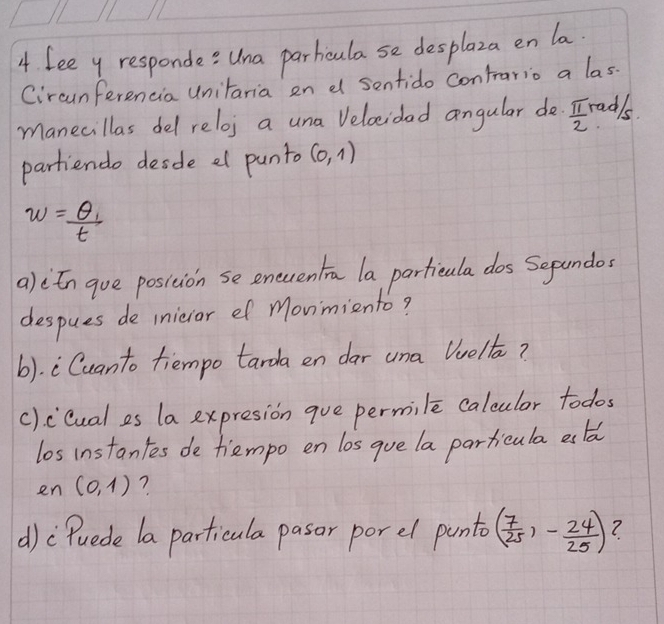 4. Lee y responde: Una particula se desplaza en la.
Circunferencia Unitaria en el sentido contrario a las.
manecillas del reloj a una Velocidad angular de π/2 rad/s.
partiendo desde el punto (0,1)
w = θ₁/t
a) ¿En que posición se encuentra la particula dos Segundos
despues de iniciar el Movimiento?
b). ¿Cuanto tiempo tarda en dar una Vuelta?
c). ¿Cual es la expresión que permite calcular todos
los instantes de tiempo en los que la particula está
en (0,1)?
d) ¿Puede la particula pasar por el punto (7/25, -24/25)?